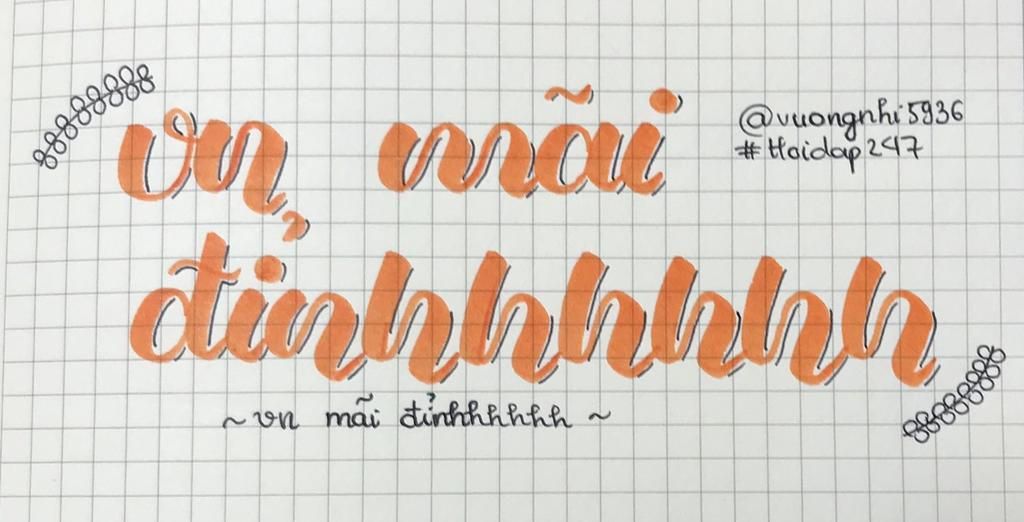 vn mãi
@vuongnhi5936
#Hoidap247
đỉnhhhhhh
~ vn mãi đỉnhhhhhh ~